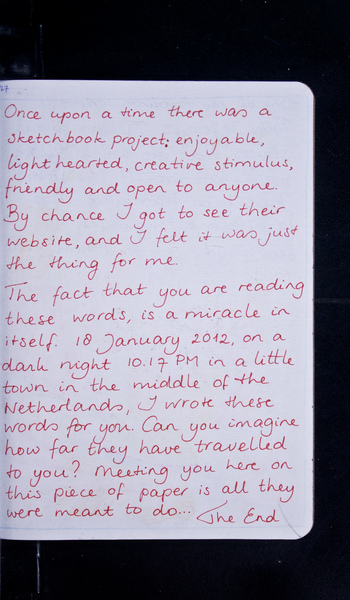 27
Once upon a time there was a
sketchbook project: enjoyable,
lighthearted, creative stimulus,
friendly and open to anyone.
By chance I got to see their
website, and I felt it was just
the thing for me.
The fact that you are reading
these words, is a miracle in
itself. 18 January 2012, on a
dark night 10.17 PM in a little
town in the middle of the
Netherlands, I wrote these
words for you. Can you imagine
how far they have travelled
to you? Meeting you here on
this piece of paper is all they
were meant to do... The End